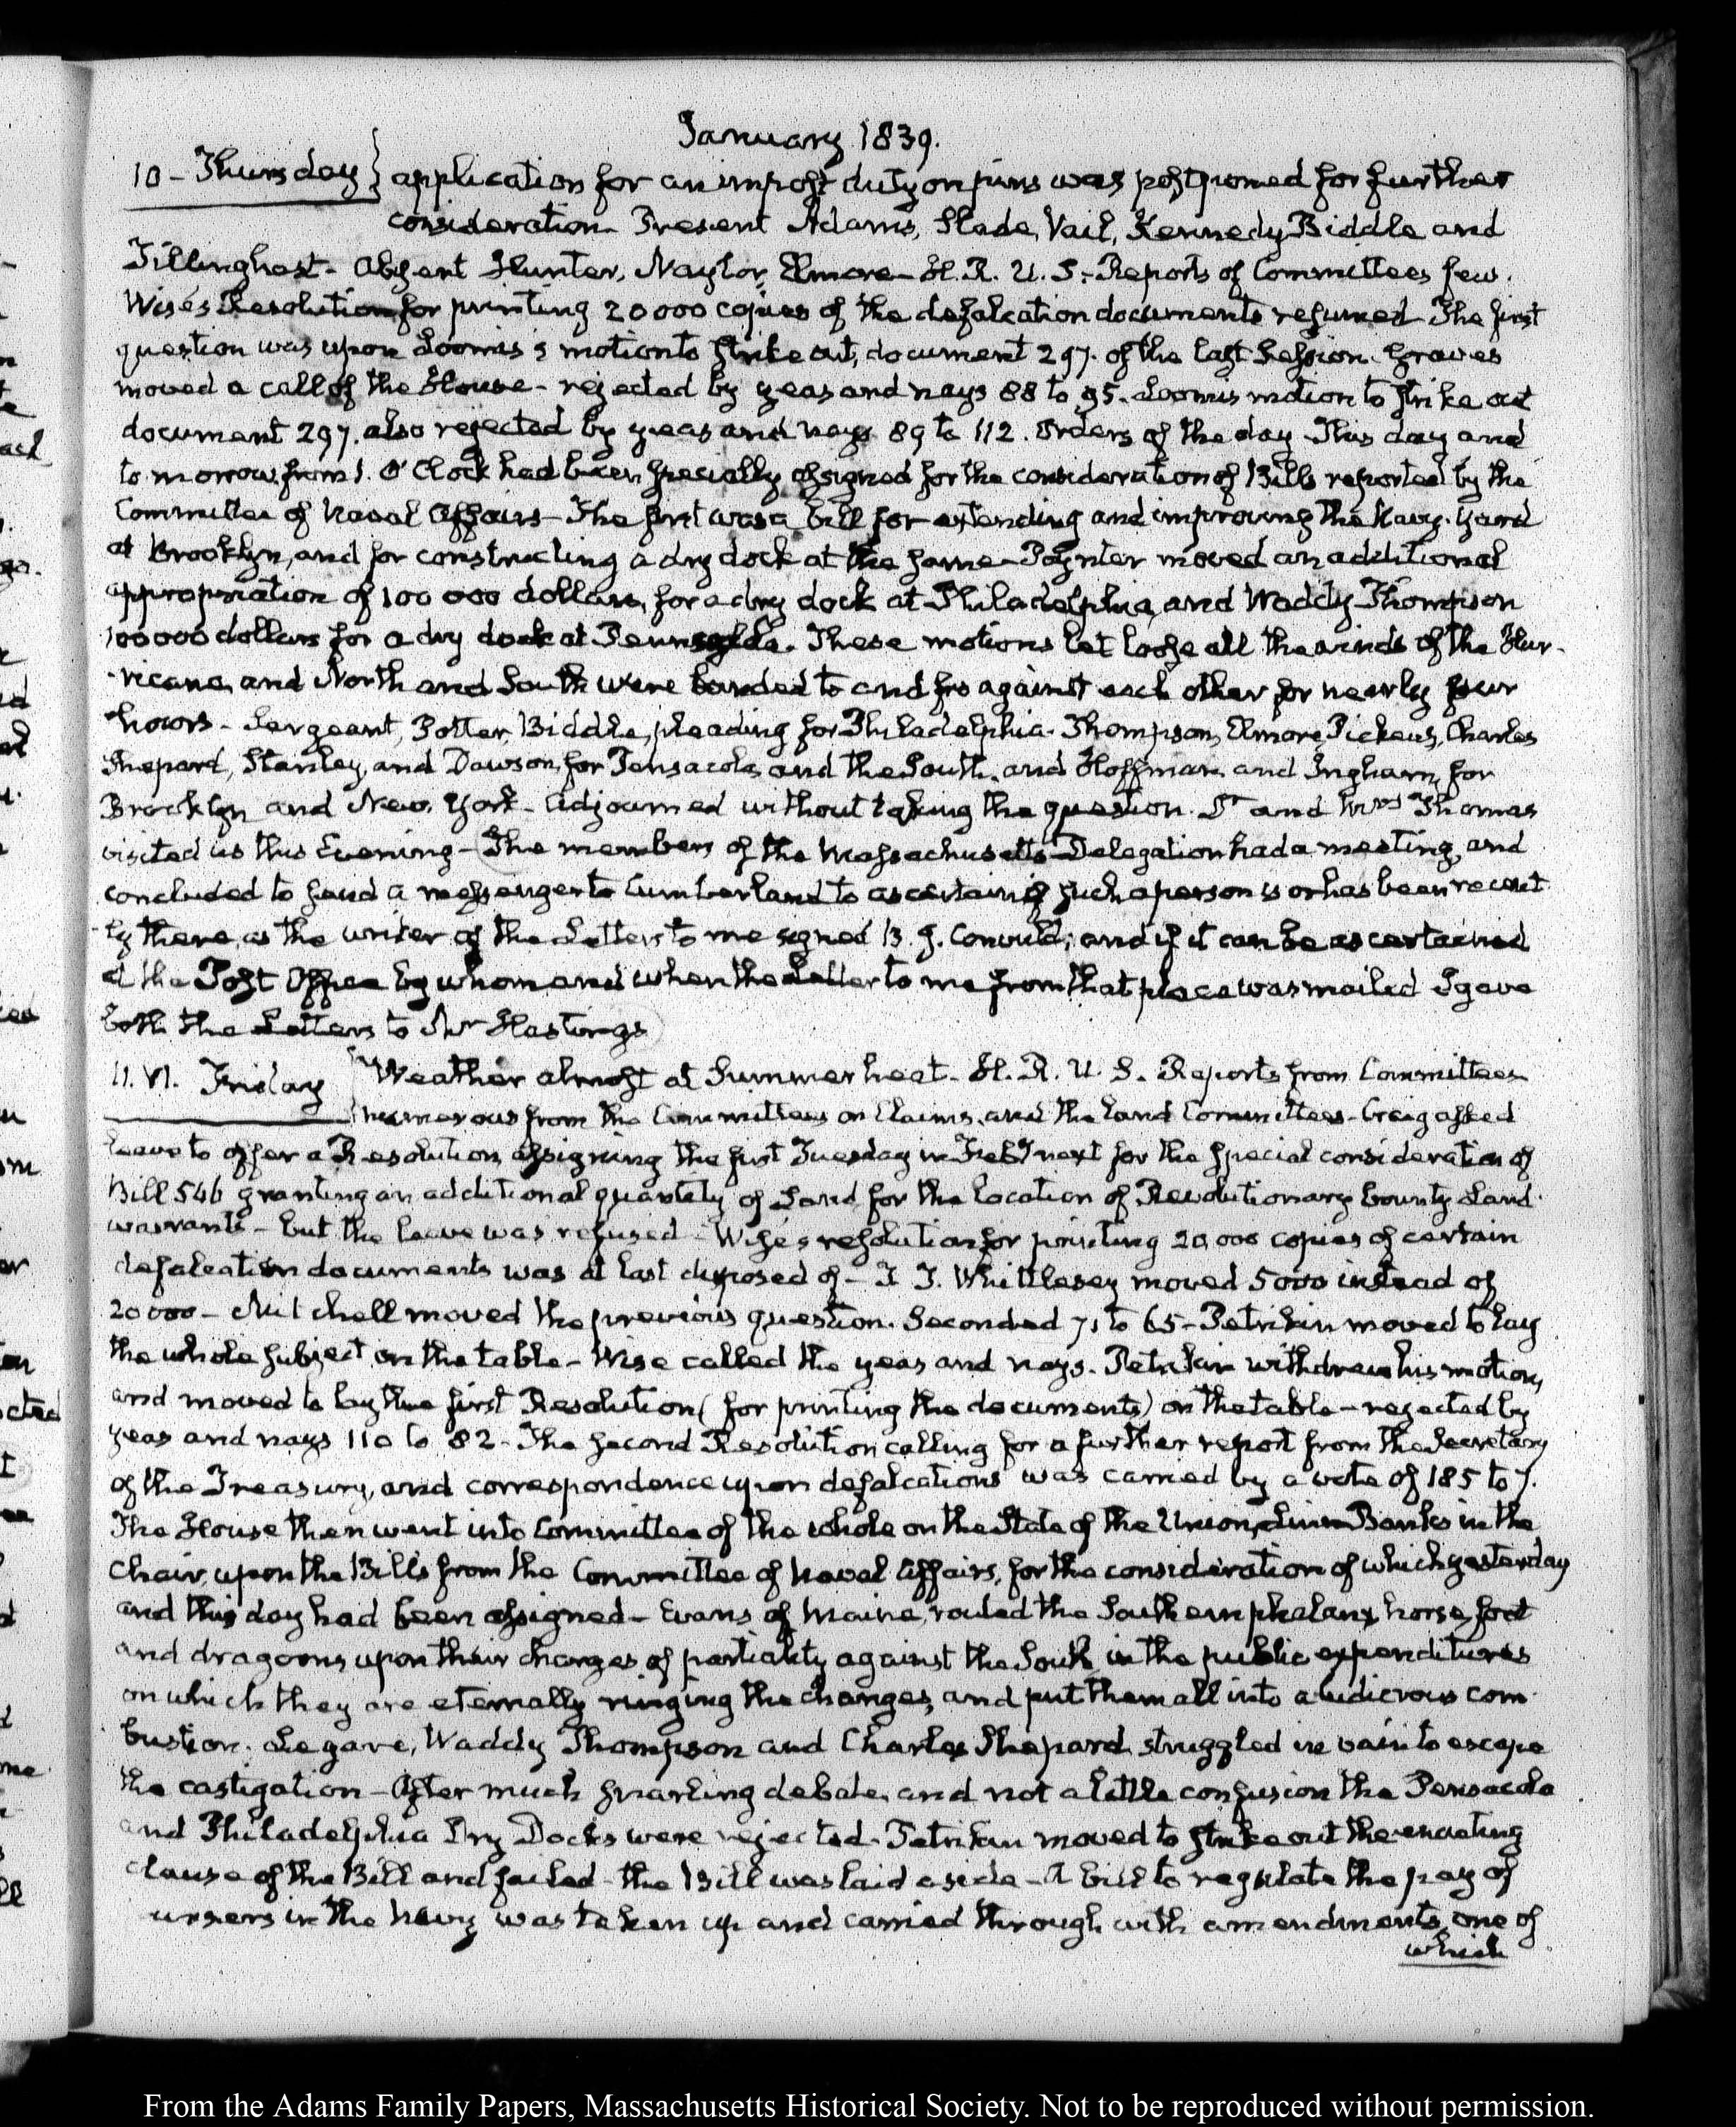 January 1839.
10 - Thursday } application for an impost duty on pins was postponed for further
consideration. Present Adams, Slade, Vail, Kennedy, Biddle and
Tillinghast - absent Hunter, Naylor, Elmore - H. R. U. S. - Reports of Committees few.
Wise's Resolution for printing 20 000 copies of the defalcation documents resumed The first
question was upon Loomis's motion to strike out, document 297. of the last Session. Graves
moved a call of the House - rejected by yeas and nays 88 to 95. Loomis motion to strike out
document 297. also rejected by yeas and nays 89 to 112. Orders of the day - This day and
to morrow from 1. O'Clock had been specially assigned for the consideration of Bills reported by the
Committee of Naval Affairs - The first was a bill for extending and improving the Navy-Yard
at Brooklyn, and for constructing a dry dock at the same - Paynter moved an additional
appropriation of 100 000 dollars, for a dry dock at Philadelphia, and Waddy Thompson
100 000 dollars for a dry dock at Pensacola. These motions let loose all the winds of the Hur-
-ricane, and North and South were banded to and fro against each other for nearly four
hours - Sergeant, Potter, Biddle, pleading for Philadelphia - Thompson, Elmore, Pickens, Charles
Shepard, Stanley, and Dawson, for Pensacola, and the South, and Hoffman and Ingham, for
Brooklyn and New-York - Adjourned without taking the question. Dr and Mrs Thomas
visited us this Evening - The members of the Massachusetts Delegation had a meeting, and
concluded to send a messenger to Cumberland to ascertain if such a person is or has been recent-
-ly there, as the writer of the Letters to me signed B. J. Conruld; and if it can be ascertained
at the Post Office by whom and when the Letter to me from that place was mailed I gave
both the Letters to Mr Hastings
11. VI. Friday } Weather almost at Summer heat - H. R. U. S. Reports from Committees
numerous from the Committees on Claims, and the Land Committees - Craig asked
leave to offer a Resolution, assigning the first Tuesday in Feby next for the special consideration of
Bill 546 granting an additional quantity of Land for the location of Revolutionary bounty Land-
warrants - but the leave was refused - Wise's resolution for printing 20,000 copies of certain
defalcation documents was at last disposed of - T. T. Whittlesey moved 5000 instead of
20 000 - Mitchell moved the previous question. Seconded 71 to 65 - Petrikin moved to lay
the whole subject on the table - Wise called the yeas and nays. Petrikin withdrew his motion,
and moved to lay the first Resolution (for printing the documents) on the table - rejected by
yeas and nays 110 to 82 - The second Resolution calling for a further report from the Secretary
of the Treasury, and correspondence upon defalcations was carried by a vote of 185 to 7.
The House then went into Committee of the whole on the State of the Union, Linn Banks in the
Chair, upon the Bills from the Committee of Naval Affairs, for the consideration of which yesterday
and this day had been assigned - Evans of Maine, routed the Southern phalanx horse, foot
and dragoons, upon their charges of partiality against the South in the public expenditures
on which they are eternally ringing the changes, and put them all into a ludicrous com-
bustion. Legare, Waddy Thompson and Charles Shepard struggled in vain to escape
the castigation - After much snarling debate, and not a little confusion the Pensacola
and Philadelphia Dry Docks were rejected - Petrikin moved to strike out the enacting
clause of the Bill and failed - the Bill was laid aside - A bill to regulate the pay of
ursers in the Navy was taken up and carried through with amendments, one of
which
From the Adams Family Papers, Massachusetts Historical Society. Not to be reproduced without permission.